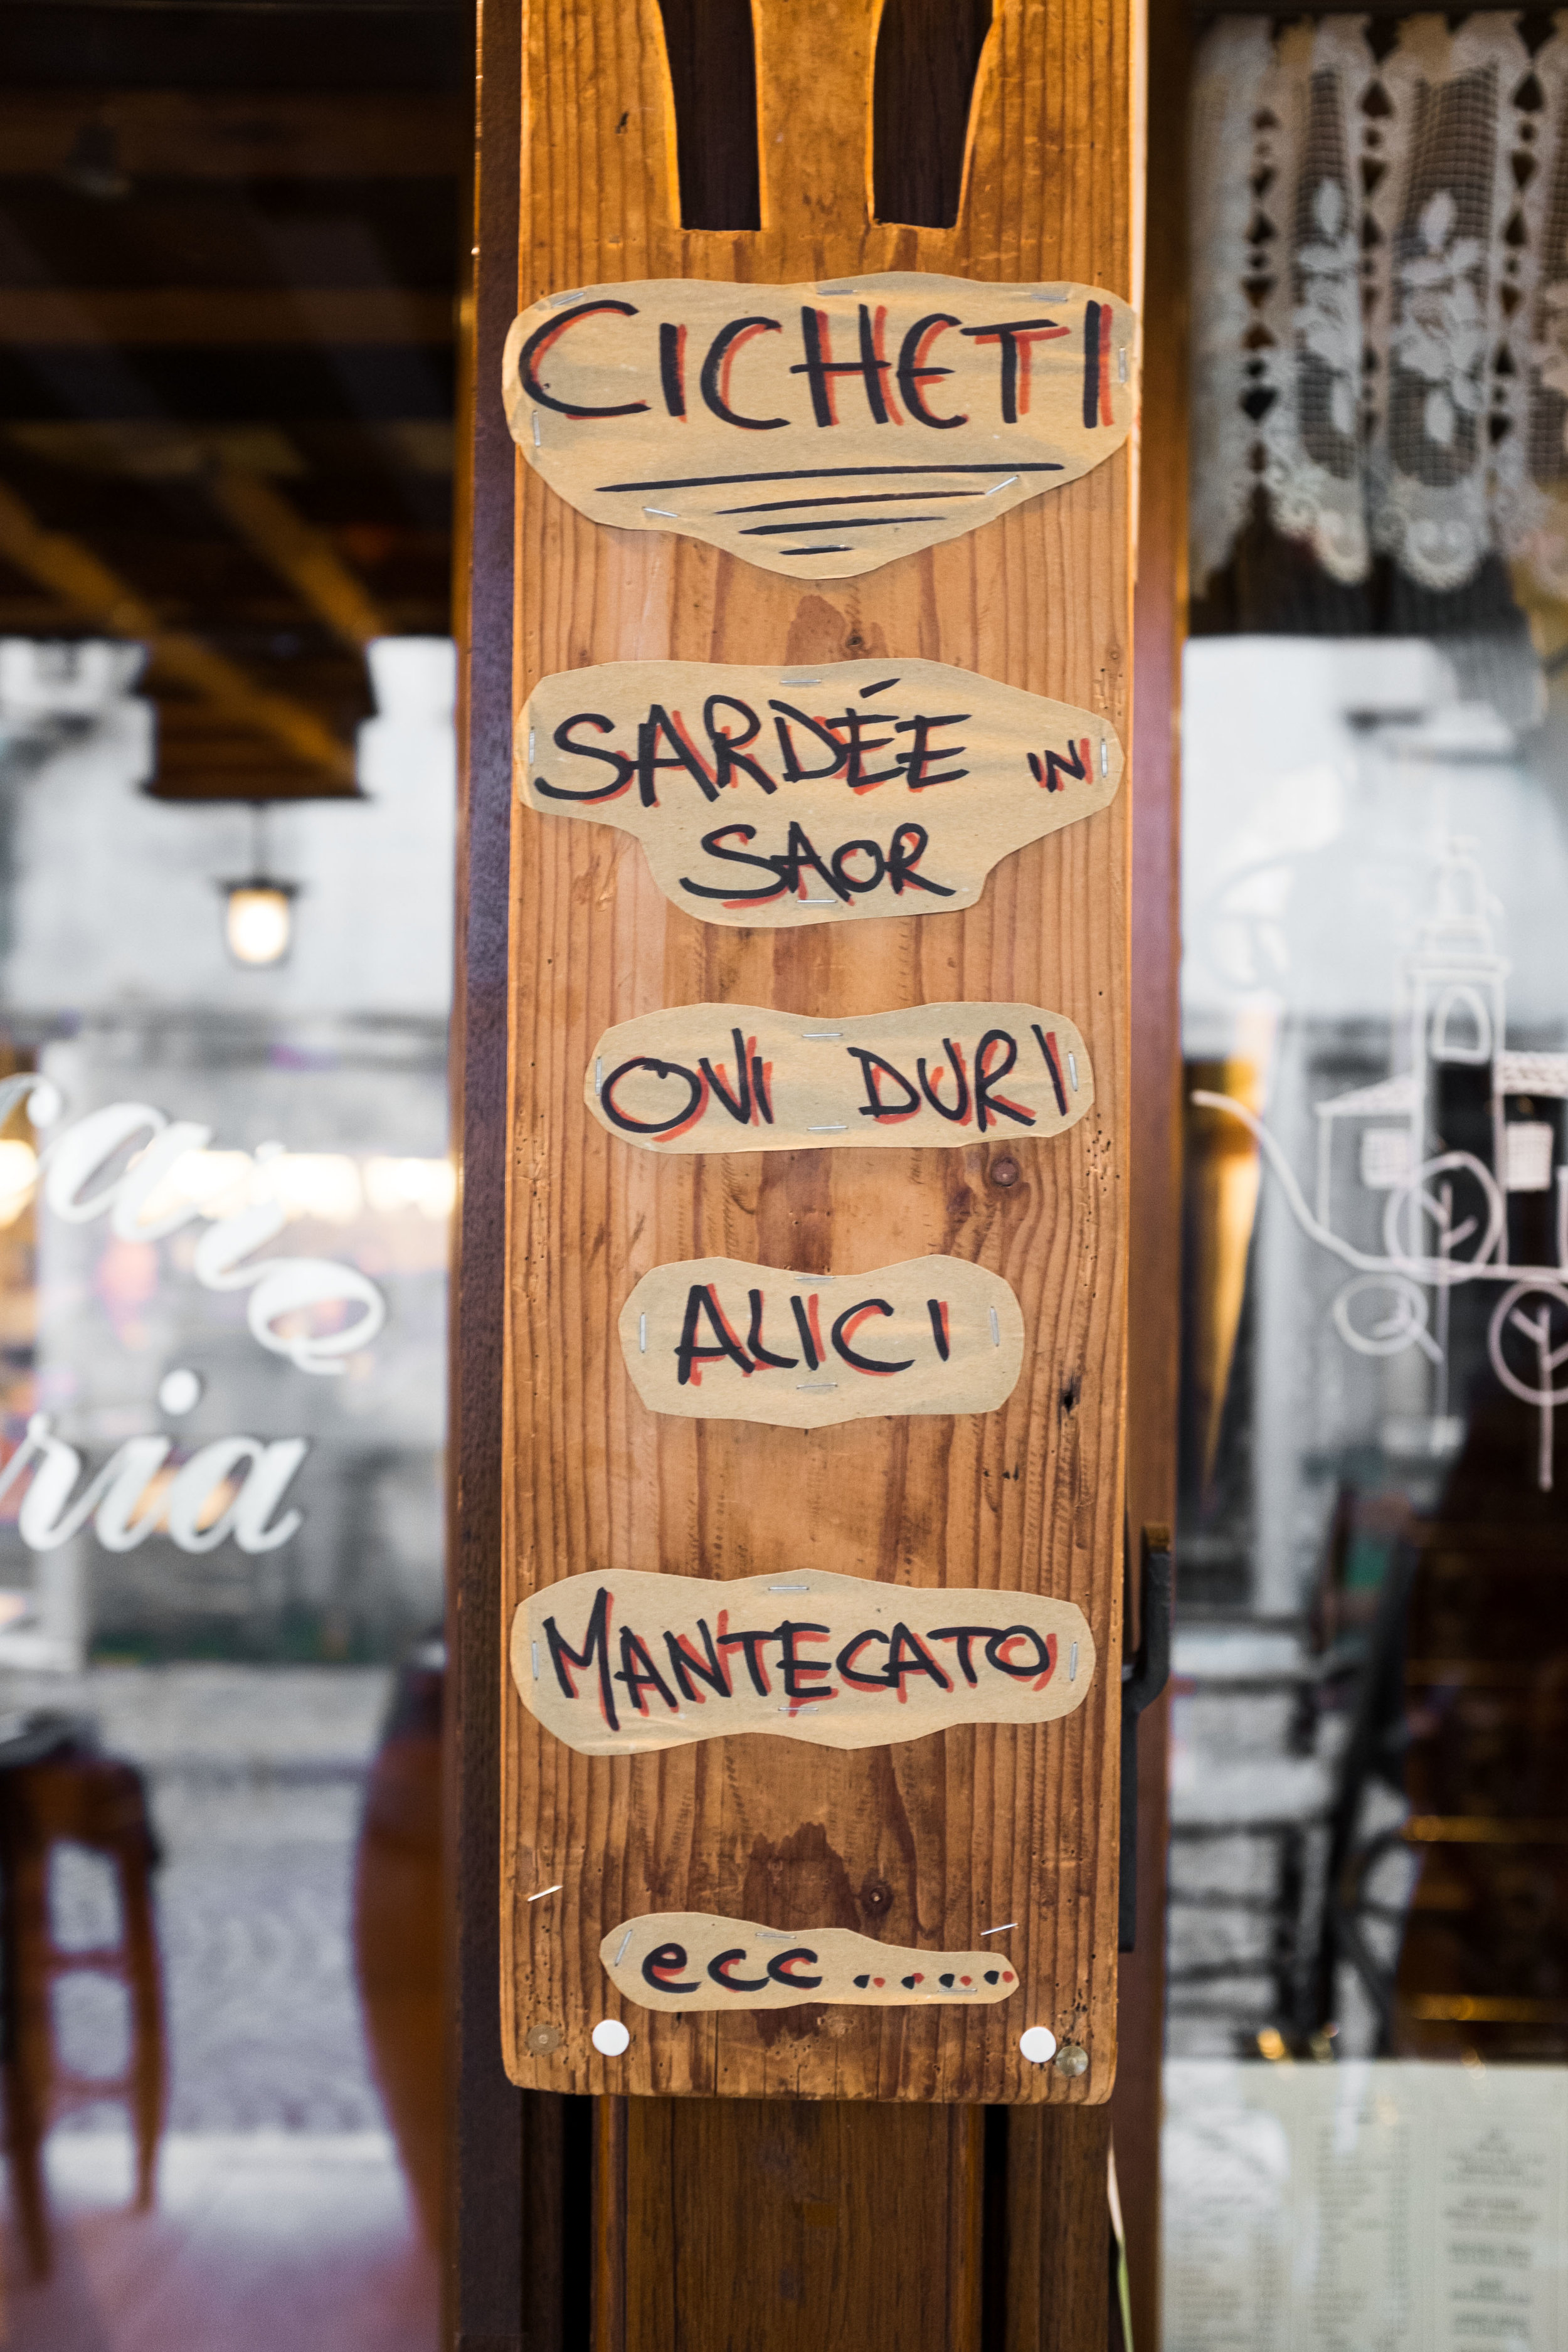 CICHETI
SARDÉE IN
SAOR
OVI DURI
ALICI
MANTECATO
ecc......
ria